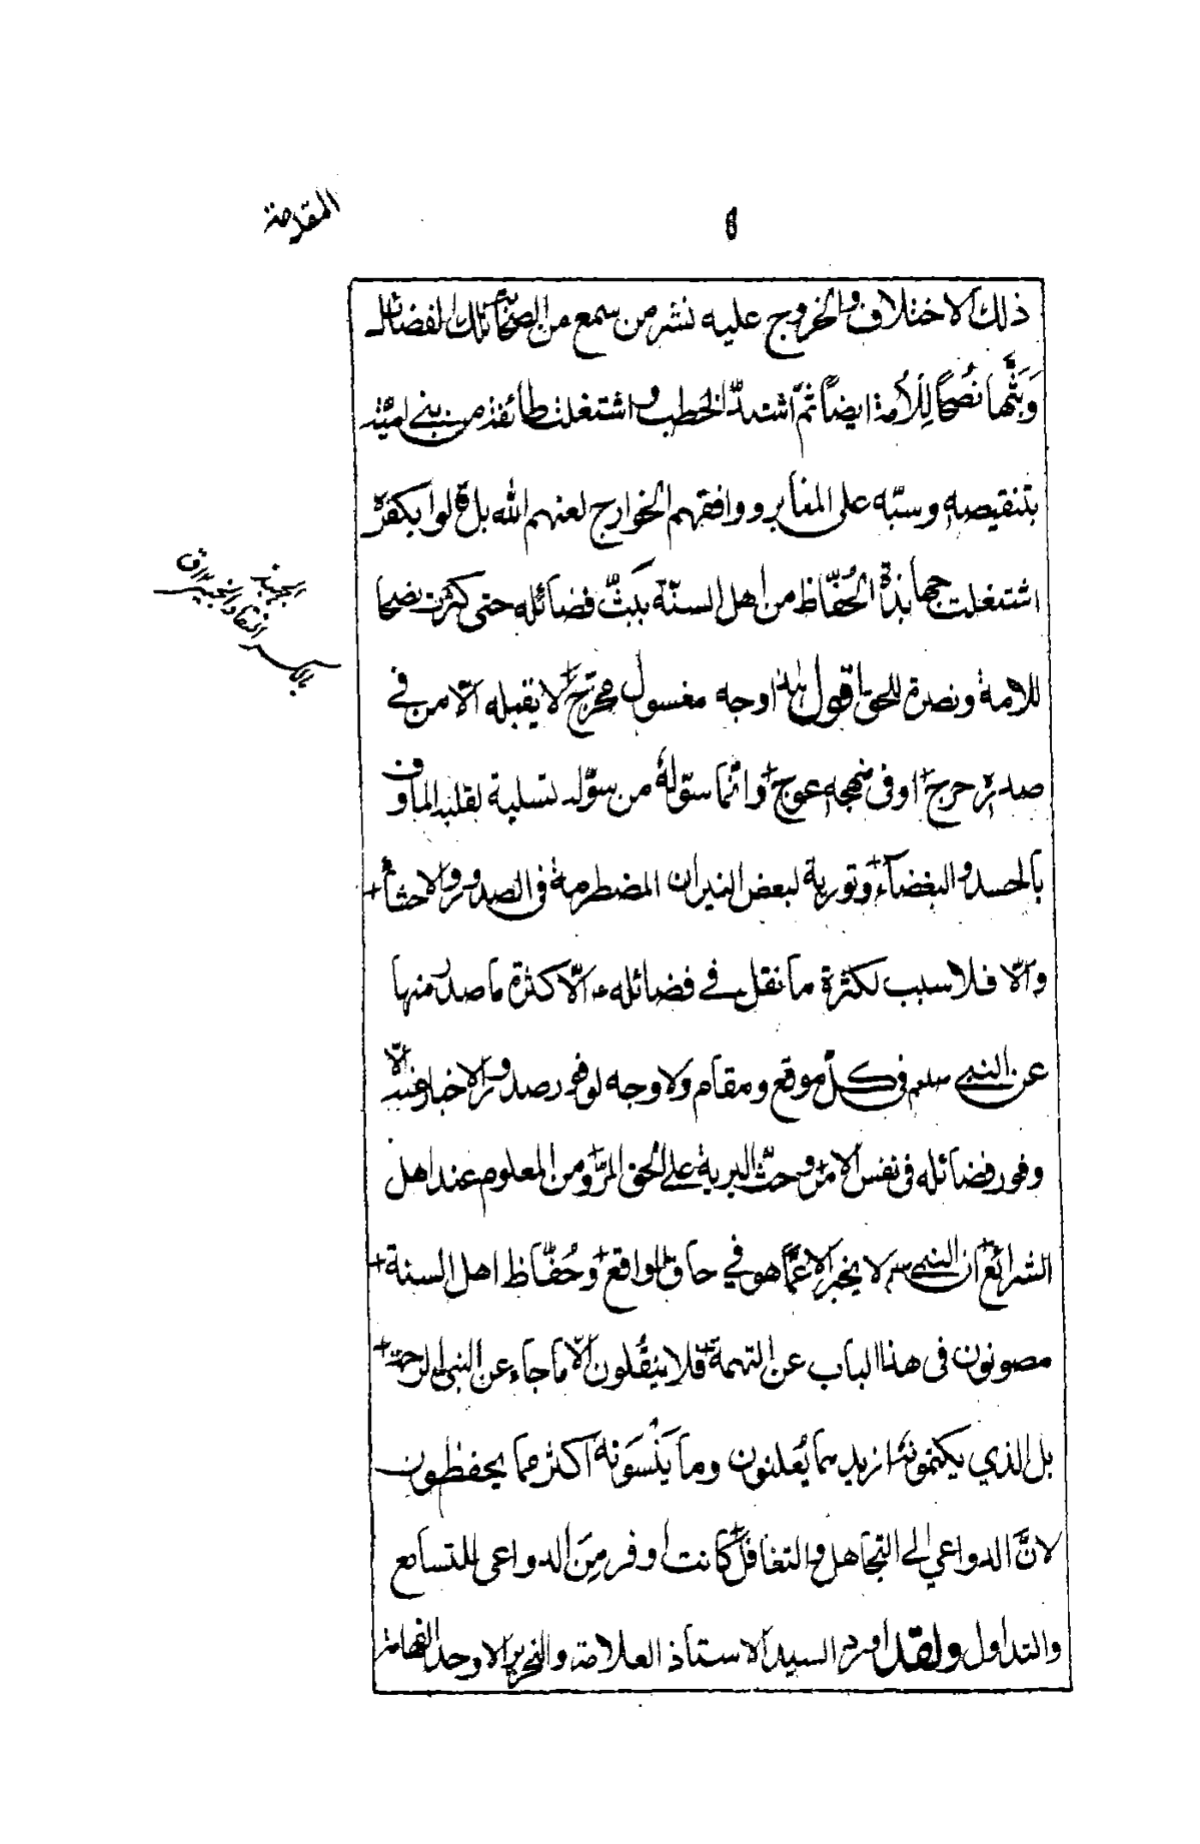 المقدمة
ذلك الاختلاف والخروج عليه نشر من سمع من الصحابة تلك الفضائل
وَبَثَّها نُصحًا لِلأُمة ايضاً ثمّ اشتدّ الخطب واشتغلت طائفة من بني امية
بتنقيصه وسبّه على المنابر ووافقهم الخوارج لعنهم الله بل قالوا بكفره
اشتغلت جهابذة الحُفّاظ من اهل السنّة بِبَثّ فضائله حتى كثرت نصحا
للامة ونصرة للحق اقول هذا وجه مغسول لا يقبله الّا من في
صدره حرج او في منهجه عوج وانّما سوّله من سوّله تسلية لقلبه المأوف
بالحسد والبغضآء وتورية لبعض النيران المضطرمة في الصدور والاحشآء
والّا فلا سبب لكثرة ما نقل في فضائله ء الّا كثرة ما صدر منها
عن النبي صلعم في كلّ موقع ومقام ولا وجه لوفور صدور الاخبار فيه الّا
وفور فضائله في نفس الامر وحثّ البرية على الحق المرّ ومن المعلوم عند اهل
الشرائع انّ النبي لا يخبر الا عمّا هو في حاق الواقع وحُفّاظ اهل السنة
مصونون في هذا الباب عن التهمة فلا ينقُلون الّا ما جاء عن النبي الرحمة
بل الذي يكتمونه ازيد مما يُعلنون وما يَنْسَونه اكثر مما يحفظون
لانَّ الدواعي الى التجاهل والتغافل كانت اوفر مِنَ الدواعي للتسامع
والتداول ولقد اورد السيد الاستاذ العلامة والنحرير الاوحد الفهامة
الجهبذ
بالكسر النقاد الخبير ق